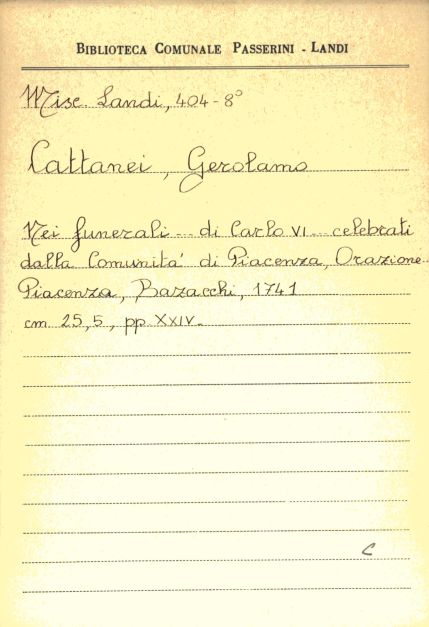 BIBLIOTECA COMUNALE PASSERINI - LANDI
Misc. Landi, 404-8°
Cattanei, Gerolamo
Nei funerali... di Carlo VI... celebrati
dalla Comunità di Piacenza, Orazione.
Piacenza, Bazacchi, 1741
cm 25,5, pp. XXIV.
C